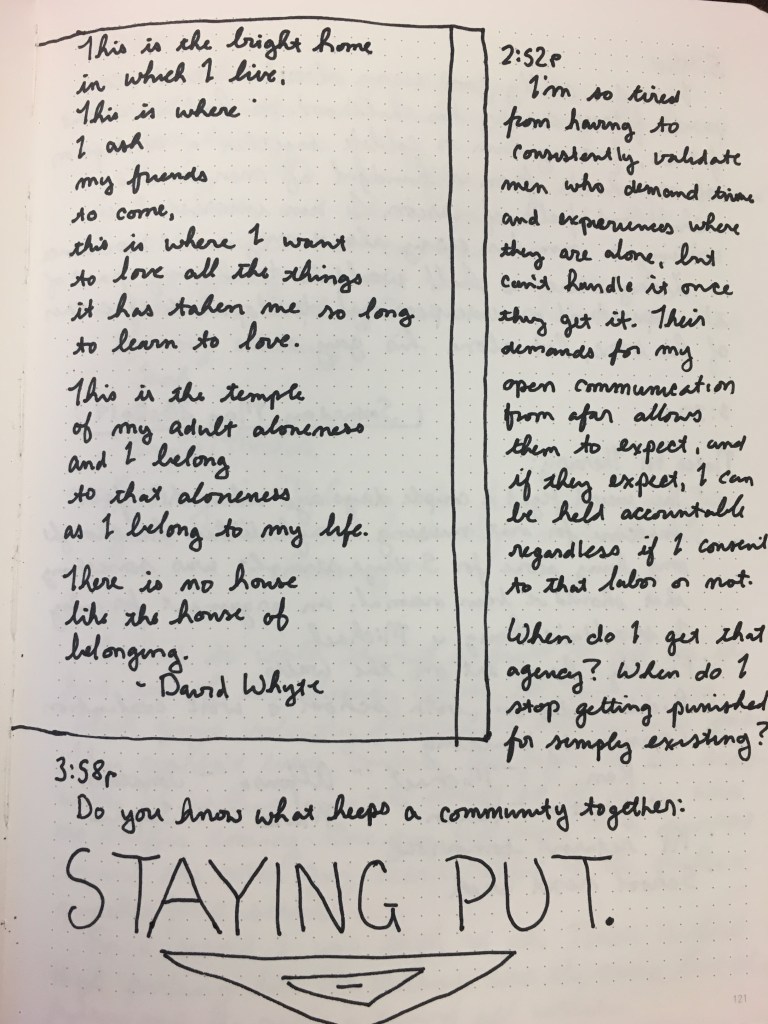 This is the bright home
in which I live,
This is where
I ask
my friends
to come,
this is where I want
to love all the things
it has taken me so long
to learn to love.
This is the temple
of my adult aloneness
and I belong
to that aloneness
as I belong to my life.
There is no house
like the house of
belonging.
- David Whyte
2:52p
I'm so tired
from having to
consistently validate
men who demand time
and experiences where
they are alone, but
can't handle it once
they get it. Their
demands for my
open communication
from afar allows
them to expect, and
if they expect, I can
be held accountable
regardless if I consent
to that labor or not.
When do I get that
agency? When do I
stop getting punished
for simply existing?
3:58p
Do you know what keeps a community together:
STAYING PUT.
121